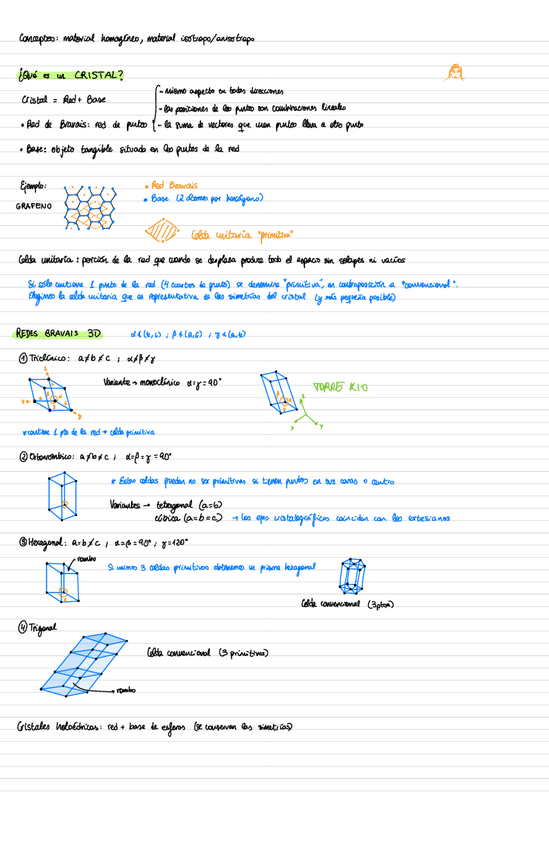 Conceptos: material homogéneo, material isótropo/anisótropo
¿Qué es un CRISTAL?
Cristal = Red + Base
- mismo aspecto en todas direcciones
- las posiciones de los puntos son combinaciones lineales
• Red de Bravais: red de puntos
- la suma de vectores que unen puntos lleva a otro punto
• Base: objeto tangible situado en los puntos de la red
Ejemplo:
GRAFENO
• Red Bravais
• Base (2 átomos por hexágono)
Celda unitaria "primitiva"
Celda unitaria: porción de la red que cuando se desplaza produce todo el espacio sin solapes ni vacíos
Si sólo contiene 1 punto de la red (4 cuartos de punto) se denomina "primitiva", en contraposición a "convencional".
Elegimos la celda unitaria que es representativa de las simetrías del cristal (y más pequeña posible)
REDES BRAVAIS 3D
α∢(b,c) ; β∢(a,c) ; γ∢(a,b)
① Triclínico: a≠b≠c ; α≠β≠γ
Variante → monoclínico α=γ=90°
TORRE KIO
* contiene 1 pto de la red → celda primitiva
② Ortorrómbico: a≠b≠c ; α=β=γ=90°
* Estas celdas pueden no ser primitivas si tienen puntos en sus caras o centro
Variantes → tetragonal (a=b)
cúbica (a=b=c) → los ejes cristalográficos coinciden con los cartesianos
③ Hexagonal: a=b≠c , α=β=90° ; γ=120°
rombo
Si unimos 3 celdas primitivas obtenemos un prisma hexagonal
Celda convencional (3 ptos)
④ Trigonal
Celda convencional (3 primitivas)
rombo
Cristales holoédricos: red + base de esferas (se conservan las simetrías)